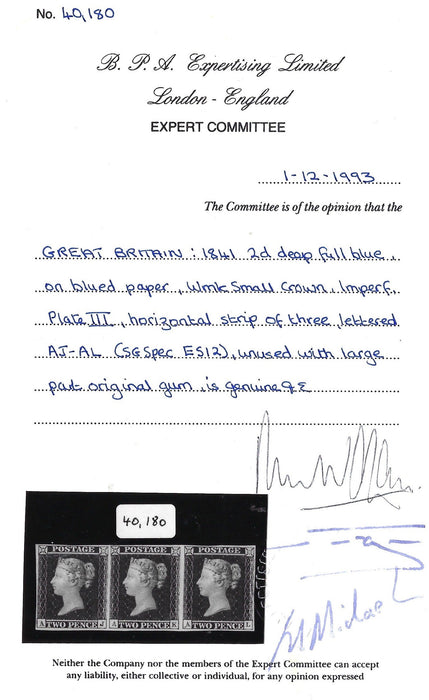 No. 40,180
B. P. A. Expertising Limited
London - England
EXPERT COMMITTEE
1-12-1993
The Committee is of the opinion that the
GREAT BRITAIN: 1841 2d deep full blue,
on blued paper, Wmk Small Crown, Imperf,
Plate III, horizontal strip of three lettered
AJ-AL (SG Spec ES12), unused with large
part original gum, is genuine
40,180
POSTAGE POSTAGE POSTAGE
A TWO PENCE J A TWO PENCE K A TWO PENCE L
Neither the Company nor the members of the Expert Committee can accept
any liability, either collective or individual, for any opinion expressed